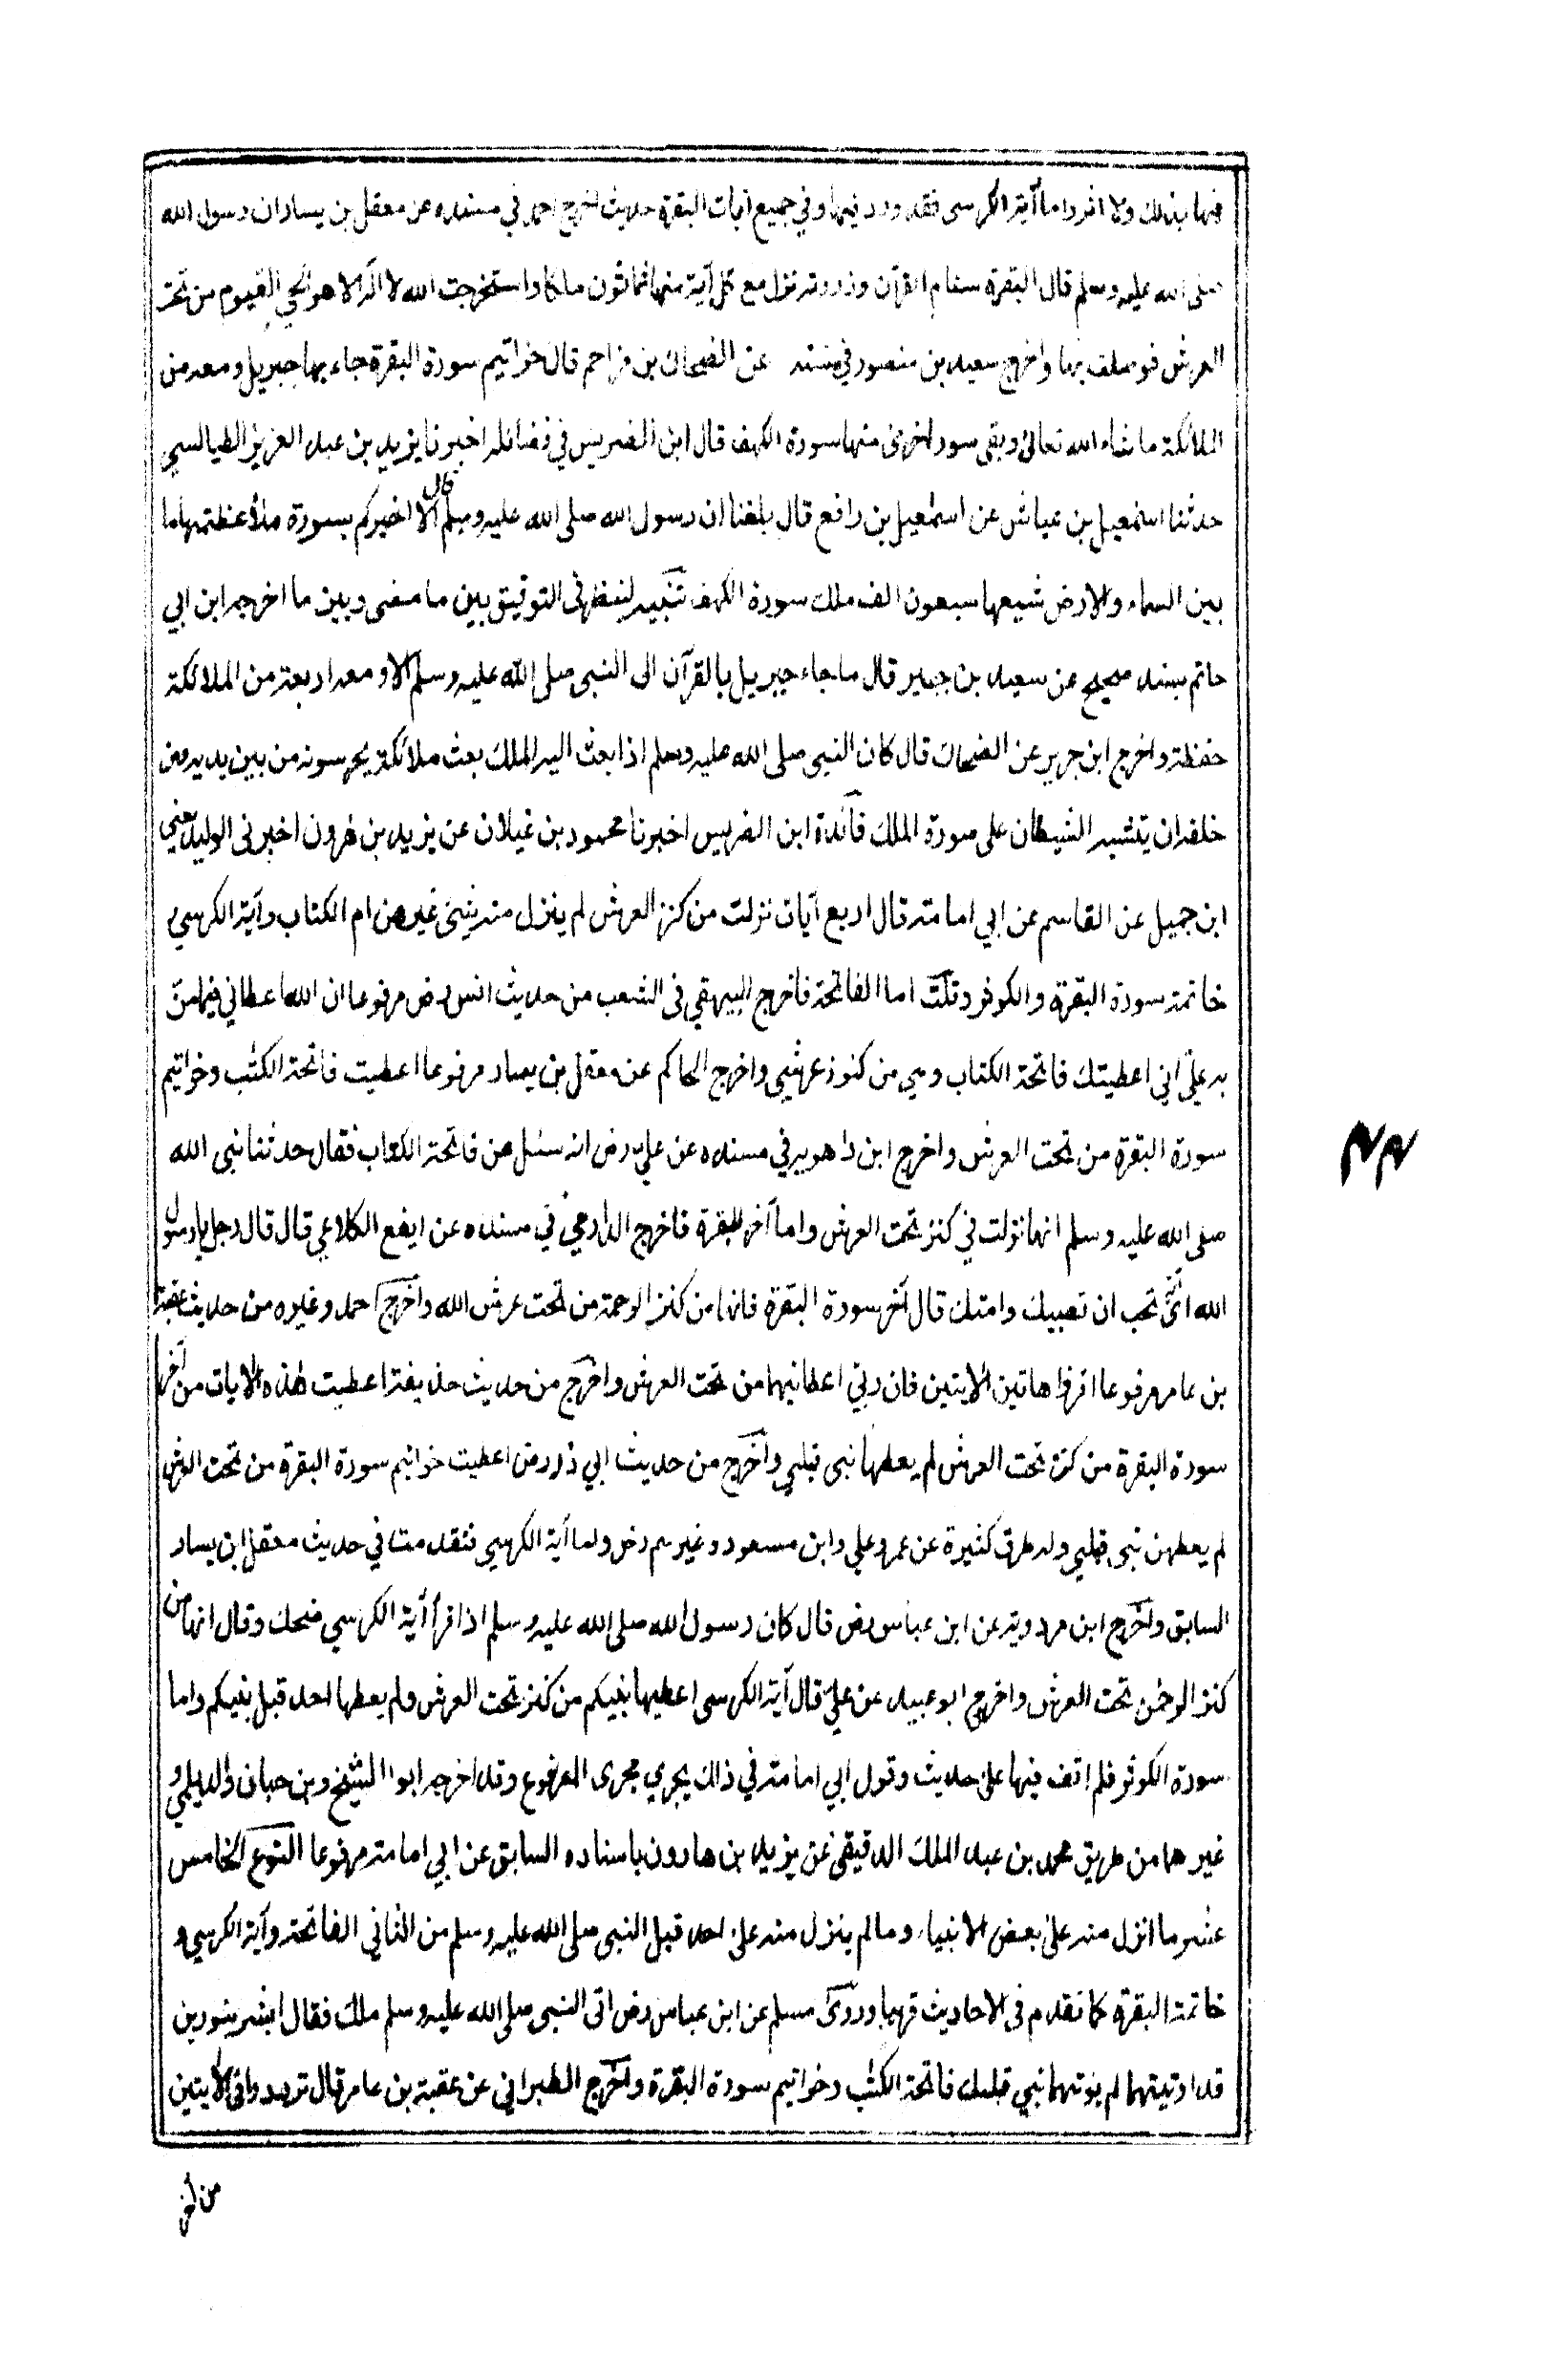 فيها بذلك ولا اثر واما آية الكرسي فقد ورد فيها وفي جميع آيات البقرة حديث اخرج احمد في مسنده عن معقل بن يسار ان رسول الله
صلى الله عليه وسلم قال البقرة سنام القرآن وذروته نزل مع كل آية منها ثمانون ملكا واستخرجت الله لا اله الا هو الحي القيوم من تحت
العرش فوصلت بها واخرج سعيد بن منصور في سننه عن الضحاك بن مزاحم قال خواتيم سورة البقرة جاء بها جبريل ومعه من
الملائكة ما شاء الله تعالى وبقي سور اخرى منها سورة الكهف قال ابن الضريس في فضائله اخبرنا يزيد بن عبد العزيز الطيالسي
حدثنا اسمعيل بن عياش عن اسمعيل بن رافع قال بلغنا ان رسول الله صلى الله عليه وسلم قال الا اخبركم بسورة ملأ عظمتها ما
بين السماء والارض شيعها سبعون الف ملك سورة الكهف تنبيه لينظر في التوفيق بين ما مضى وبين ما اخرجه ابن ابي
حاتم بسند صحيح عن سعيد بن جبير قال ما جاء جبريل بالقرآن الى النبي صلى الله عليه وسلم الا ومعه اربعة من الملائكة
حفظة واخرج ابن جرير عن الضحاك قال كان النبي صلى الله عليه وسلم اذا بعث اليه الملك بعث ملائكة يحرسونه من بين يديه ومن
خلفه ان يتشبه الشيطان على صورة الملك فائدة ابن الضريس اخبرنا محمود بن غيلان عن يزيد بن هرون اخبرني الوليد يعني
ابن جميل عن القاسم عن ابي امامة قال اربع آيات نزلت من كنز العرش لم ينزل منه شئ غيرهن ام الكتاب وآية الكرسي و
خاتمة سورة البقرة والكوثر وقلت اما الفاتحة فاخرج البيهقي في الشعب من حديث انس رض مرفوعا ان الله اعطاني فيما من
به علي اني اعطيتك فاتحة الكتاب وهي من كنوز عرشي واخرج الحاكم عن معقل بن يسار مرفوعا اعطيت فاتحة الكتب وخواتيم
سورة البقرة من تحت العرش واخرج ابن راهويه في مسنده عن علي رض انه سئل عن فاتحة الكتاب فقال حدثنا نبي الله
صلى الله عليه وسلم انها نزلت في كنز تحت العرش واما آخر البقرة فاخرج الدارمي في مسنده عن ايفع الكلاعي قال قال رجل يا رسول
الله اي آية تحب ان تصيبك وامتك قال آخر سورة البقرة فانها من كنز الرحمة من تحت عرش الله واخرج احمد وغيره من حديث عقبة
بن عامر مرفوعا اقرؤا هاتين الايتين فان ربي اعطانيهما من تحت العرش واخرج من حديث حذيفة اعطيت هذه الايات من آخر
سورة البقرة من كنز تحت العرش لم يعطها نبي قبلي واخرج من حديث ابي ذر رض اعطيت خواتيم سورة البقرة من تحت العرش
لم يعطهن نبي قبلي وله طرق كثيرة عن عمر وعلي وابن مسعود وغيرهم رض واما آية الكرسي فتقدمت في حديث معقل ابن يسار
السابق واخرج ابن مردويه عن ابن عباس رض قال كان رسول الله صلى الله عليه وسلم اذا قرأ آية الكرسي ضحك وقال انها من
كنز الرحمن تحت العرش واخرج ابو عبيد عن علي قال آية الكرسي اعطيها نبيكم من كنز تحت العرش ولم يعطها احد قبل نبيكم واما
سورة الكوثر فلم اقف فيها على حديث وقول ابي امامة في ذلك يجري مجرى المرفوع وقد اخرجه ابو الشيخ وبن حبان والديلمي و
غيرهما من طريق محمد بن عبد الملك الدقيقي عن يزيد بن هارون باسناده السابق عن ابي امامة مرفوعا النوع الخامس
عشر ما انزل منه على بعض الانبياء وما لم ينزل منه على احد قبل النبي صلى الله عليه وسلم من الثاني الفاتحة وآية الكرسي و
خاتمة البقرة كما تقدم في الاحاديث قريبا وروى مسلم عن ابن عباس رض اتى النبي صلى الله عليه وسلم ملك فقال ابشر بنورين
قد اوتيتهما لم يؤتهما نبي قبلك فاتحة الكتب وخواتيم سورة البقرة واخرج الطبراني عن عقبة بن عامر قال ترددوا في الايتين
من آخر